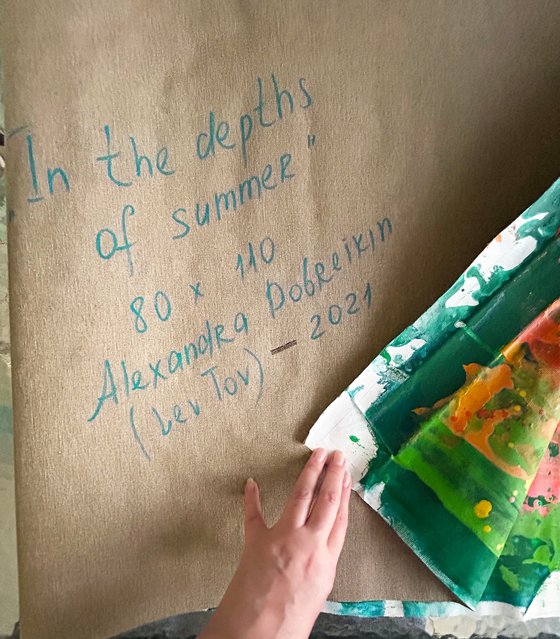 "In the depths
of summer"
80 x 110
Alexandra Dobreikin
(Lev Tov) — 2021